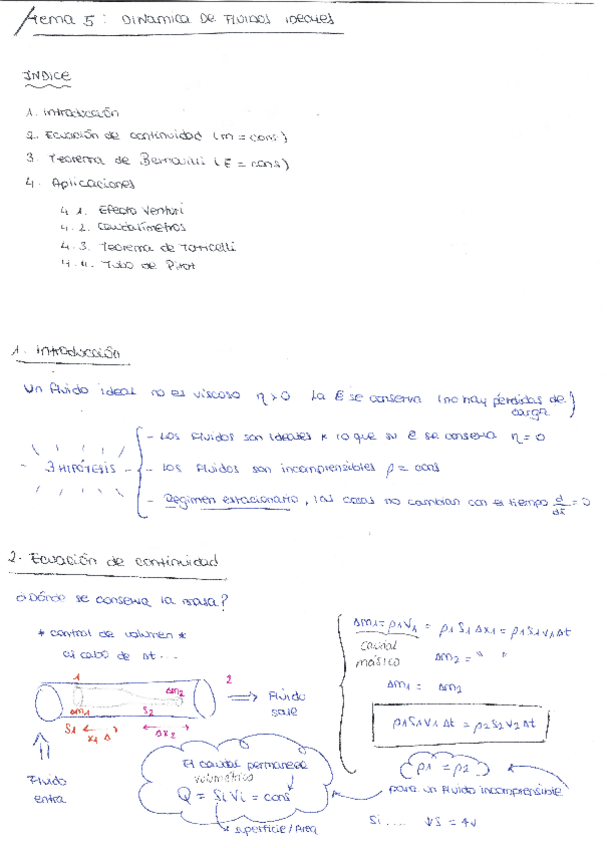 Tema 5: DINAMICA DE FLUIDOS IDEALES
INDICE
1. Introducción
2. Ecuación de continuidad (m = cons)
3. Teorema de Bernouilli (E = cons)
4. Aplicaciones
4.1. Efecto Venturi
4.2. Caudalímetros
4.3. Teorema de Torricelli
4.4. Tubo de Pitot
1. Introducción
Un fluido ideal no es viscoso η>0 La E se conserva (no hay pérdidas de carga)
3 HIPÓTESIS
- Los fluidos son ideales x lo que su E se conserva η=0
- Los fluidos son incomprensibles ρ = cons
- Regimen estacionario, las cosas no cambian con el tiempo d/dt = 0
2. Ecuación de continuidad
¿Dónde se conserva la masa?
* control de volumen *
al cabo de Δt...
1
2
Δm1
Δm2
S1
S2
x1 Δ
Δx2
Fluido entra
Fluido sale
Δm1 = ρ1V1 = ρ1S1Δx1 = ρ1S1v1Δt
Caudal másico
Δm2 = " "
Δm1 = Δm2
ρ1S1v1Δt = ρ2S2v2Δt
(ρ1 = ρ2)
para un fluido incomprensible
El caudal permanece
volumétrico
Q = Si Vi = cons
superficie/Area
Si .... ↓S = ↑v